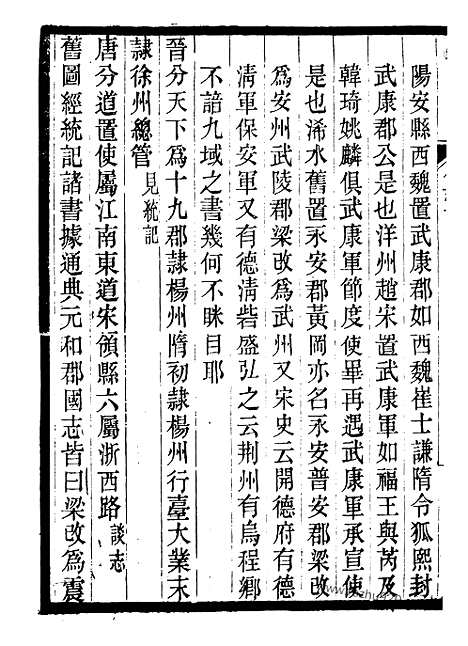 陽安縣西魏置武康郡如西魏崔士謙隋令狐熙封
武康郡公是也洋州趙宋置武康軍如福王與芮及
韓琦姚麟俱武康軍節度使畢再遇武康軍承宣使
是也浠水舊置永安郡黃岡亦名永安普安郡梁改
爲安州武陵郡梁改爲武州又宋史云開德府有德
淸軍保安軍又有德淸砦盛弘之云荆州有烏程鄉
不諳九域之書幾何不眯目耶
晉分天下爲十九郡隸楊州隋初隸楊州行臺大業末
隸徐州總管見統記
唐分道置使屬江南東道宋領縣六屬浙西路談志
舊圖經統記諸書據通典元和郡國志皆曰梁改爲震